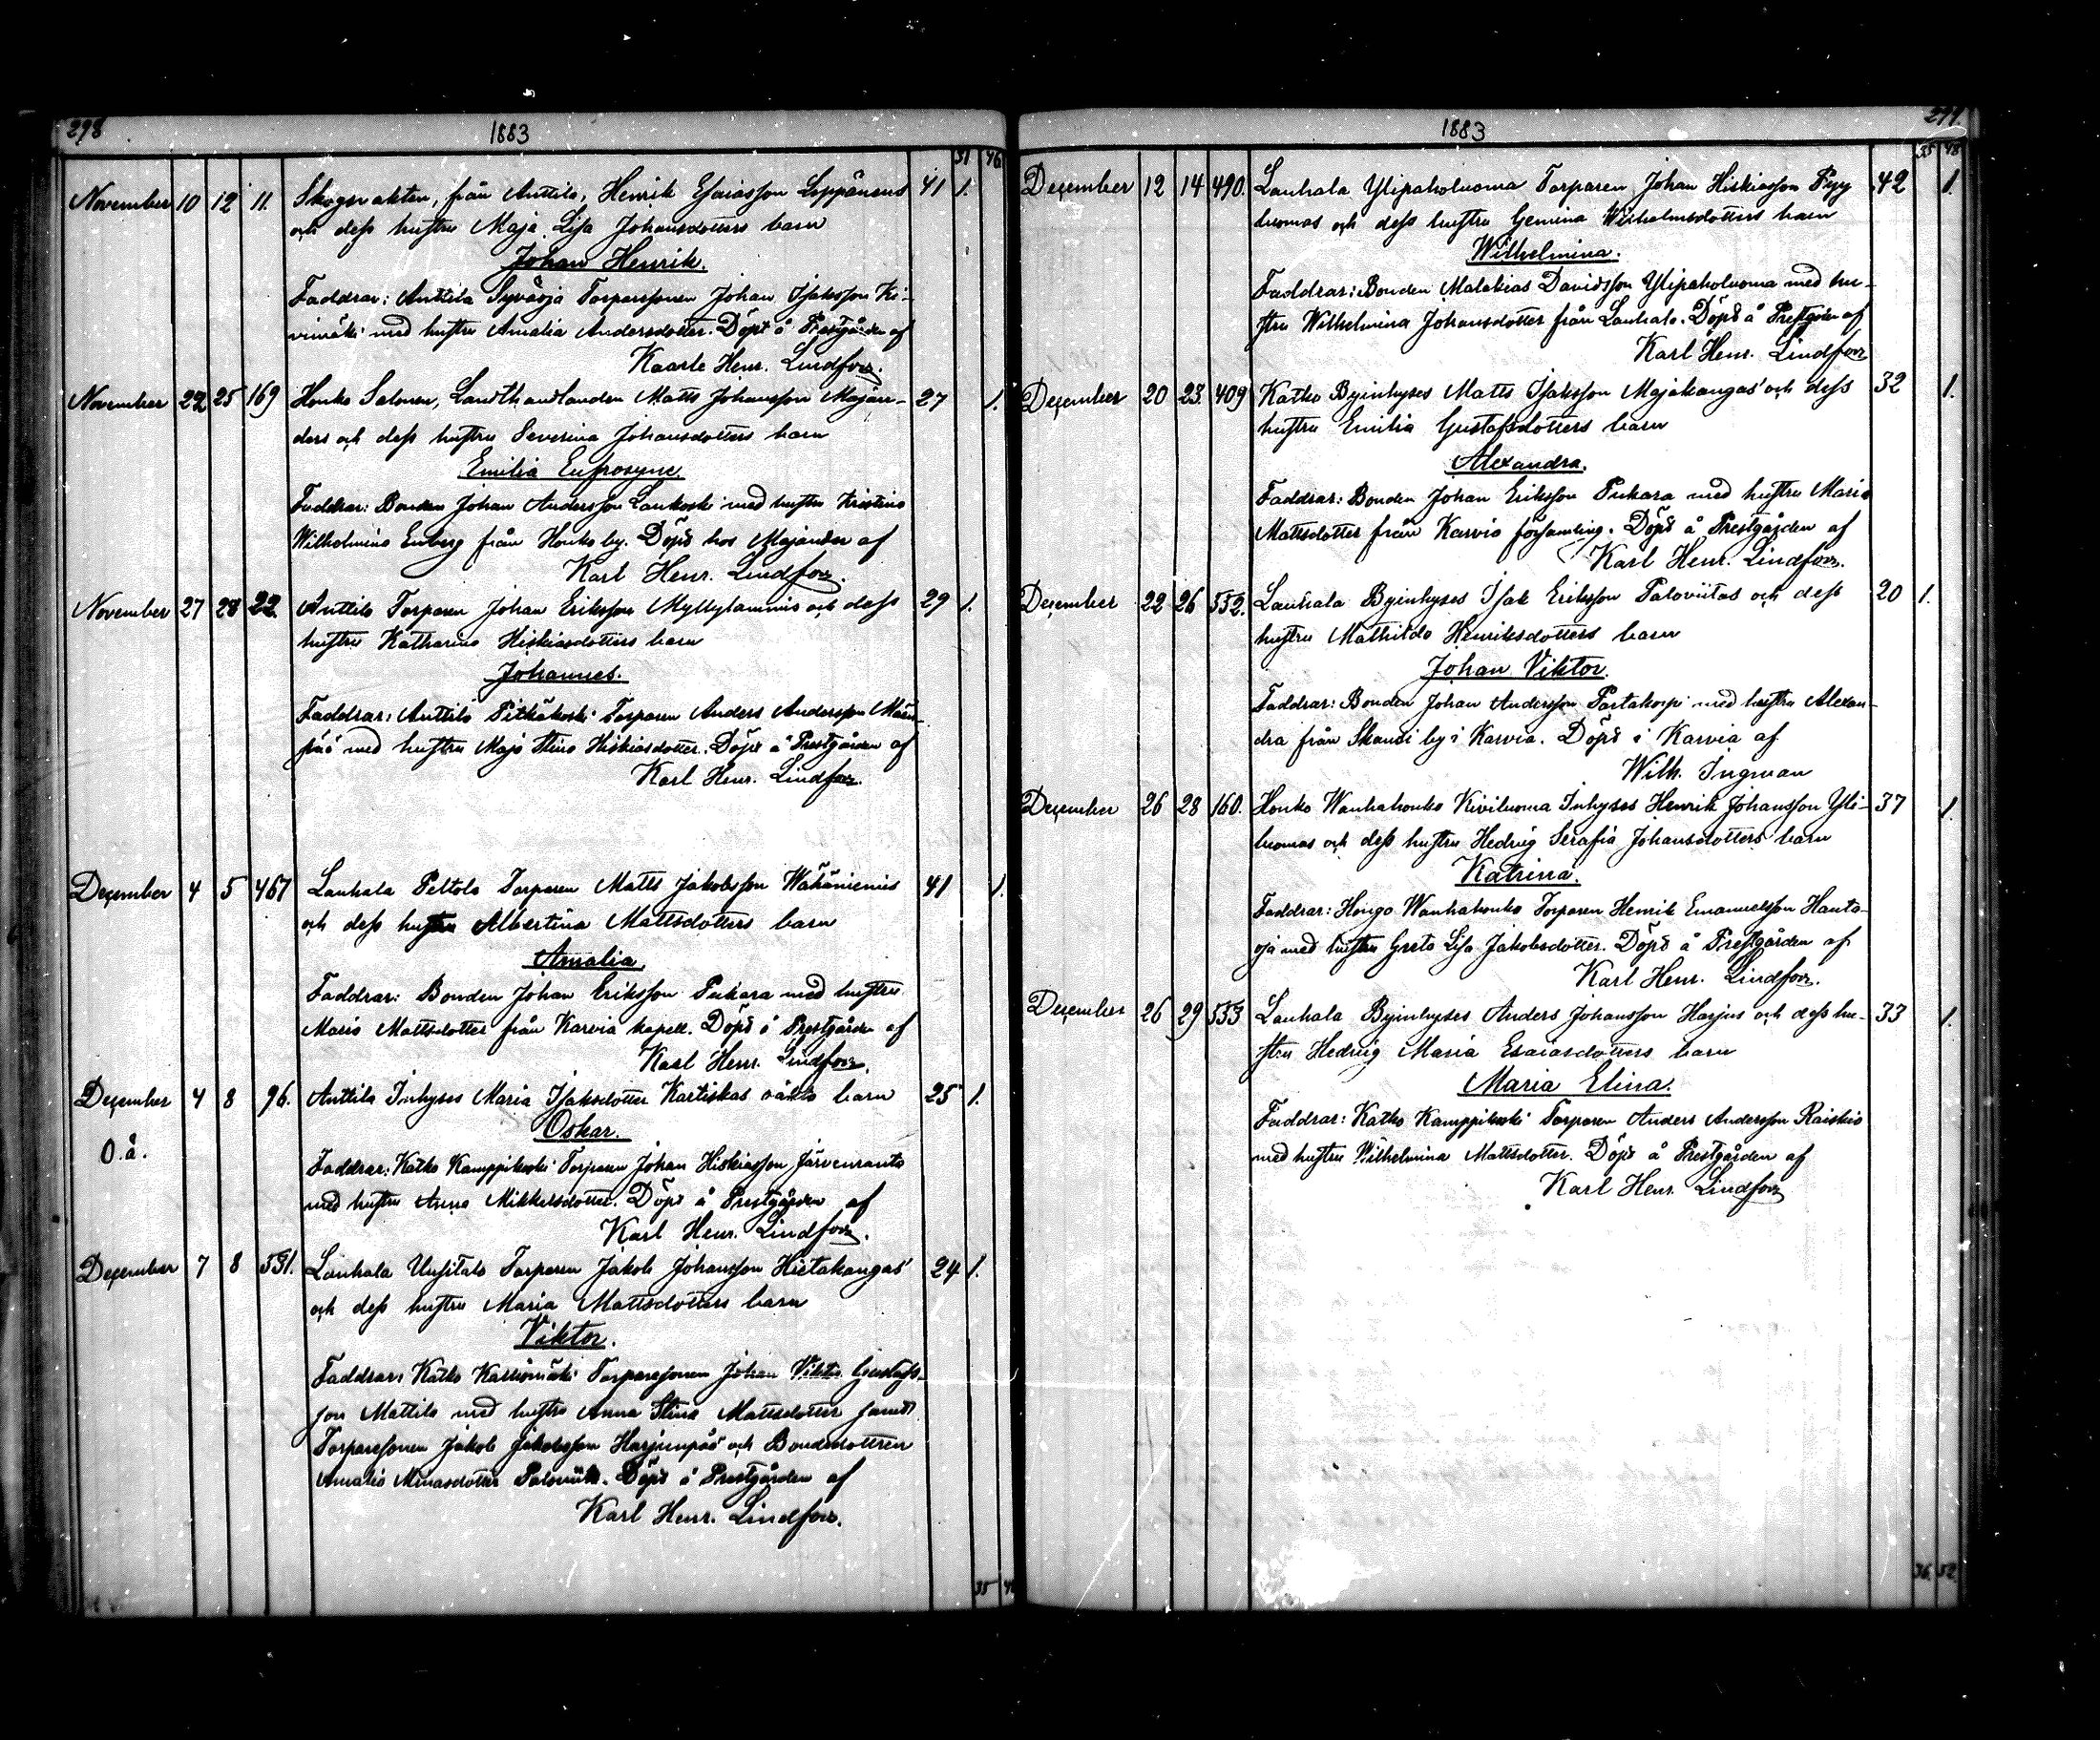 298
1883
31 46
November 10 12 11. Skogvakten, från Anttila, Henrik Esaiasson Leppänens 41 1.
och dess hustru Maja Lisa Johansdotters barn
Johan Henrik.
Faddrar: Anttila Syväoja Torparesonen Johan Isaksson Ki-
vimäki med hustru Amalia Andersdotter. Döpt å Prestgården af
Kaarle Henr. Lindfors.
November 22 25 169 Honko Salonen, Landthandlanden Matts Johansson Majan-27 1.
ders och dess hustru Severina Johansdotters barn
Emilia Eufrosyne.
Faddrar: Bonden Johan Andersson Lankoski med hustru Kristina
Wilhelmina Enberg från Honko by. Döpt hos Majander af
Karl Henr. Lindfors.
November 27 28 22. Anttila Torparen Johan Eriksson Myllylammis och dess 29 1.
hustru Katharina Hiskiasdotters barn
Johannes.
Faddrar: Anttila Pitkäkoski Torparen Anders Andersson
med hustru Maja Stina Hiskiasdotter. Döpt å Prestgården af
Karl Henr. Lindfors.
December 4 5 467 Lauhala Peltola Torparen Matts Jakobsson Wähäniemis 41 1.
och dess hustru Albertina Mattsdotters barn
Amalia.
Faddrar: Bonden Johan Eriksson Pukara med hustru
Maria Mattsdotter från Karvia kapell. Döpt å Prestgården af
Karl Henr. Lindfors.
December 4 8 96. Anttila Inhyses Maria Isaksdotter Kartiskas oäkta barn 25 1.
Oskar.
O.ä.
Faddrar: Katko Kamppikoski Torparen Johan Hiskiasson Järvenranta
med hustru Anna Mikkelsdotter. Döpt å Prestgården af
Karl Henr. Lindfors.
December 7 8 551. Lauhala Uusitalo Torparen Jakob Johansson Hietakangas' 24 1.
och dess hustru Maria Mattsdotters barn
Viktor.
Faddrar: Katko Karriomäki Torparesonen Johan Viktor Gustafs-
son Mattila med hustru Anna Stina Mattsdotter samt
Torparesonen Jakob Jakobsson Harjunpää och Bondedottren
Amalia Menasdotter Paloviita. Döpt å Prestgården af
Karl Henr. Lindfors.
35
299.
1883
35 48
December 12 14 490. Lauhala Ylipaholuoma Torparen Johan Hiskiasson Pyy 42 1.
luomas och dess hustru Gemina Wilhelmsdotters barn
Wilhelmina.
Faddrar: Bonden Malakias Davidsson Ylipaholuoma med hu-
stru Wilhelmina Johansdotter från Lauhala. Döpt å Prestgården af
Karl Henr. Lindfors
December 20 23. 409 Katko Byinhyses Matts Isaksson Majakangas' och dess 32 1.
hustru Emilia Gustafsdotters barn
Alexandra.
Faddrar: Bonden Johan Eriksson Pukara med hustru Maria
Mattsdotter från Karvia församling. Döpt å Prestgården af
Karl Henr. Lindfors.
December 22 26 552. Lauhala Byinhyses Isak Eriksson Paloviitas och dess 20 1.
hustru Mathilda Henriksdotters barn
Johan Viktor.
Faddrar: Bonden Johan Andersson Partakorpi med hustru Alexan-
dra från Skansi by i Karvia. Döpt i Karvia af
Wilh. Ingman
December 26 28 160. Honko Wanhahonko Kiviluoma Inhyses Henrik Johansson Yli-37 1.
luomas och dess hustru Hedvig Serafia Johansdotters barn
Katrina.
Faddrar: Hongo Wanhahonko Torparen Henrik Emanuelsson Hauta-
oja med hustru Greta Lisa Jakobsdotter. Döpt å Prestgården af
Karl Henr. Lindfors.
December 26 29 553 Lauhala Byinhyses Anders Johansson Harjus och dess hu-33 1.
stru Hedvig Maria Esaiasdotters barn
Maria Elina.
Faddrar: Katko Kamppikoski Torparen Anders Andersson Raiskio
med hustru Wilhelmina Mattsdotter. Döpt å Prestgården af
Karl Henr. Lindfors
36. 52.